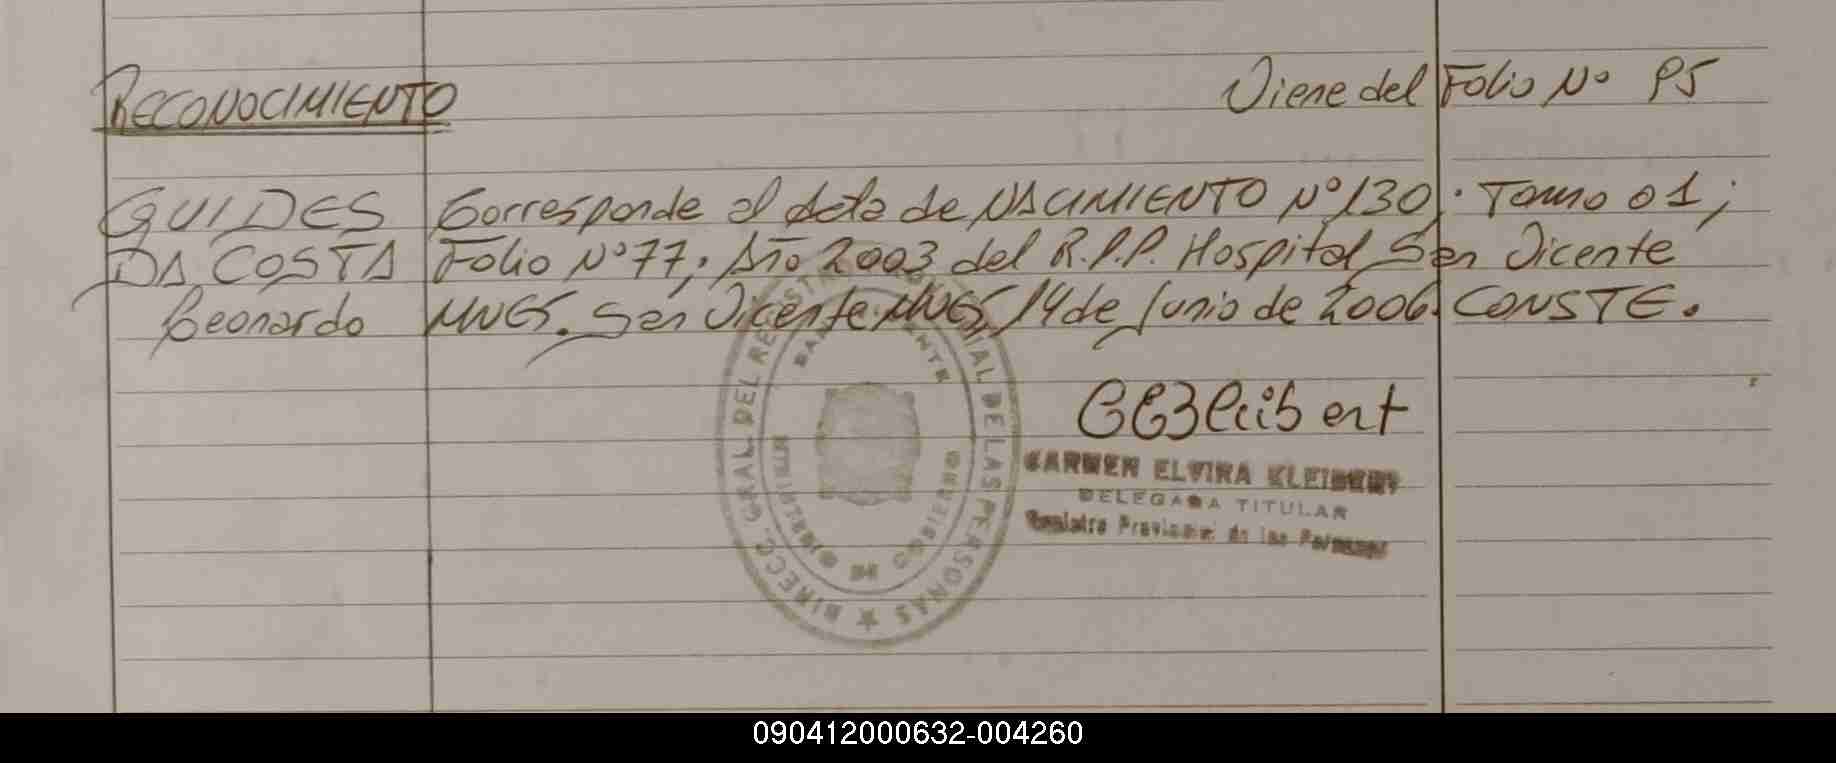 RECONOCIMIENTO
Viene del Folio Nº 95
GUIDES Corresponde al Acta de NACIMIENTO Nº 130; Tomo 01;
DA COSTA Folio Nº 77; Año 2003 del R.P.P. Hospital San Vicente
Leonardo MNES. San Vicente MNES, 14 de Junio de 2006. CONSTE.
CARMEN ELVIRA KLEIBERT
DELEGADA TITULAR
Registro Provincial de las Personas
DIRECC. GRAL. DEL REGISTRO PROVINCIAL DE LAS PERSONAS
SAN VICENTE
MINISTERIO DE GOBIERNO
090412000632-004260